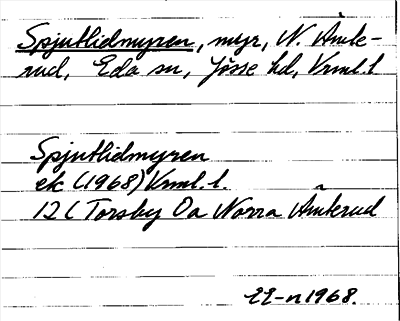 Spjutlidmyren, myr, N. Åmte-
rud, Eda sn, Jösse hd, Vrml.l
Spjutlidmyren
ek (1968) Vrml.l.
12C Torsby Oa Norra Åmterud
EE-n 1968.